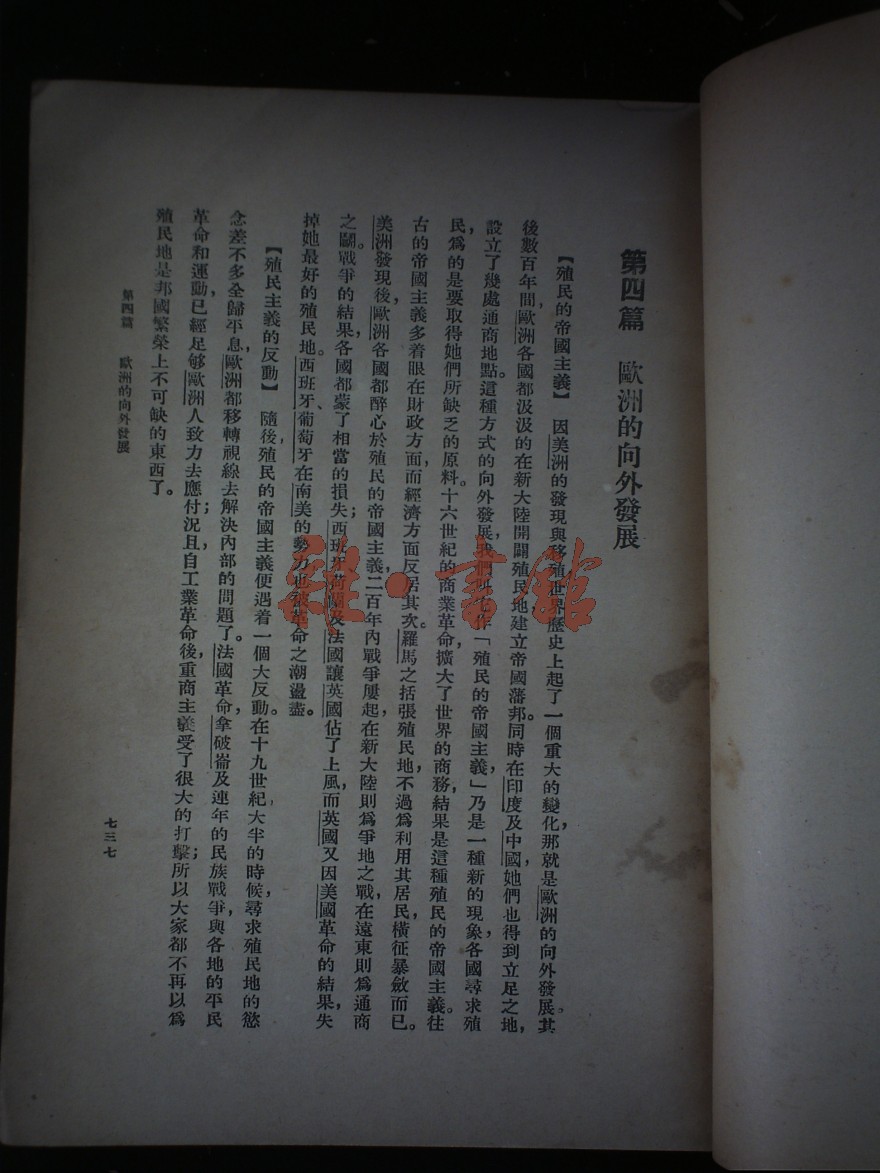 第四篇　歐洲的向外發展
【殖民的帝國主義】　因美洲的發現與移殖世界歷史上起了一個重大的變化，那就是歐洲的向外發展。其
後數百年間，歐洲各國都汲汲的在新大陸開闢殖民地建立帝國藩邦。同時在印度及中國，她們也得到立足之地，
設立了幾處通商地點。這種方式的向外發展，我們叫它作「殖民的帝國主義，」乃是一種新的現象各國尋求殖
民，爲的是要取得她們所缺乏的原料。十六世紀的商業革命，擴大了世界的商務，結果是這種殖民的帝國主義。往
古的帝國主義多着眼在財政方面，而經濟方面反居其次。羅馬之括張殖民地，不過爲利用其居民，橫征暴斂而已。
美洲發現後，歐洲各國都醉心於殖民的帝國主義，二百年內戰爭屢起，在新大陸則爲爭地之戰，在遠東則爲通商
之鬭。戰爭的結果，各國都蒙了相當的損失；西班牙荷蘭及法國讓英國佔了上風，而英國又因美國革命的結果，失
掉她最好的殖民地。西班牙、葡萄牙在南美的勢力也被革命之潮盪盡。
【殖民主義的反動】　隨後，殖民的帝國主義便遇着一個大反動。在十九世紀，大半的時候，尋求殖民地的慾
念差不多全歸平息，歐洲都移轉視線去解決內部的問題了。法國革命，拿破崙及連年的民族戰爭，與各地的平民
革命和運動，已經足够歐洲人致力去應付；況且自工業革命後，重商主義受了很大的打擊；所以大家都不再以爲
殖民地是邦國繁榮上不可缺的東西了。
第四篇　歐洲的向外發展
七三七
雜·書館